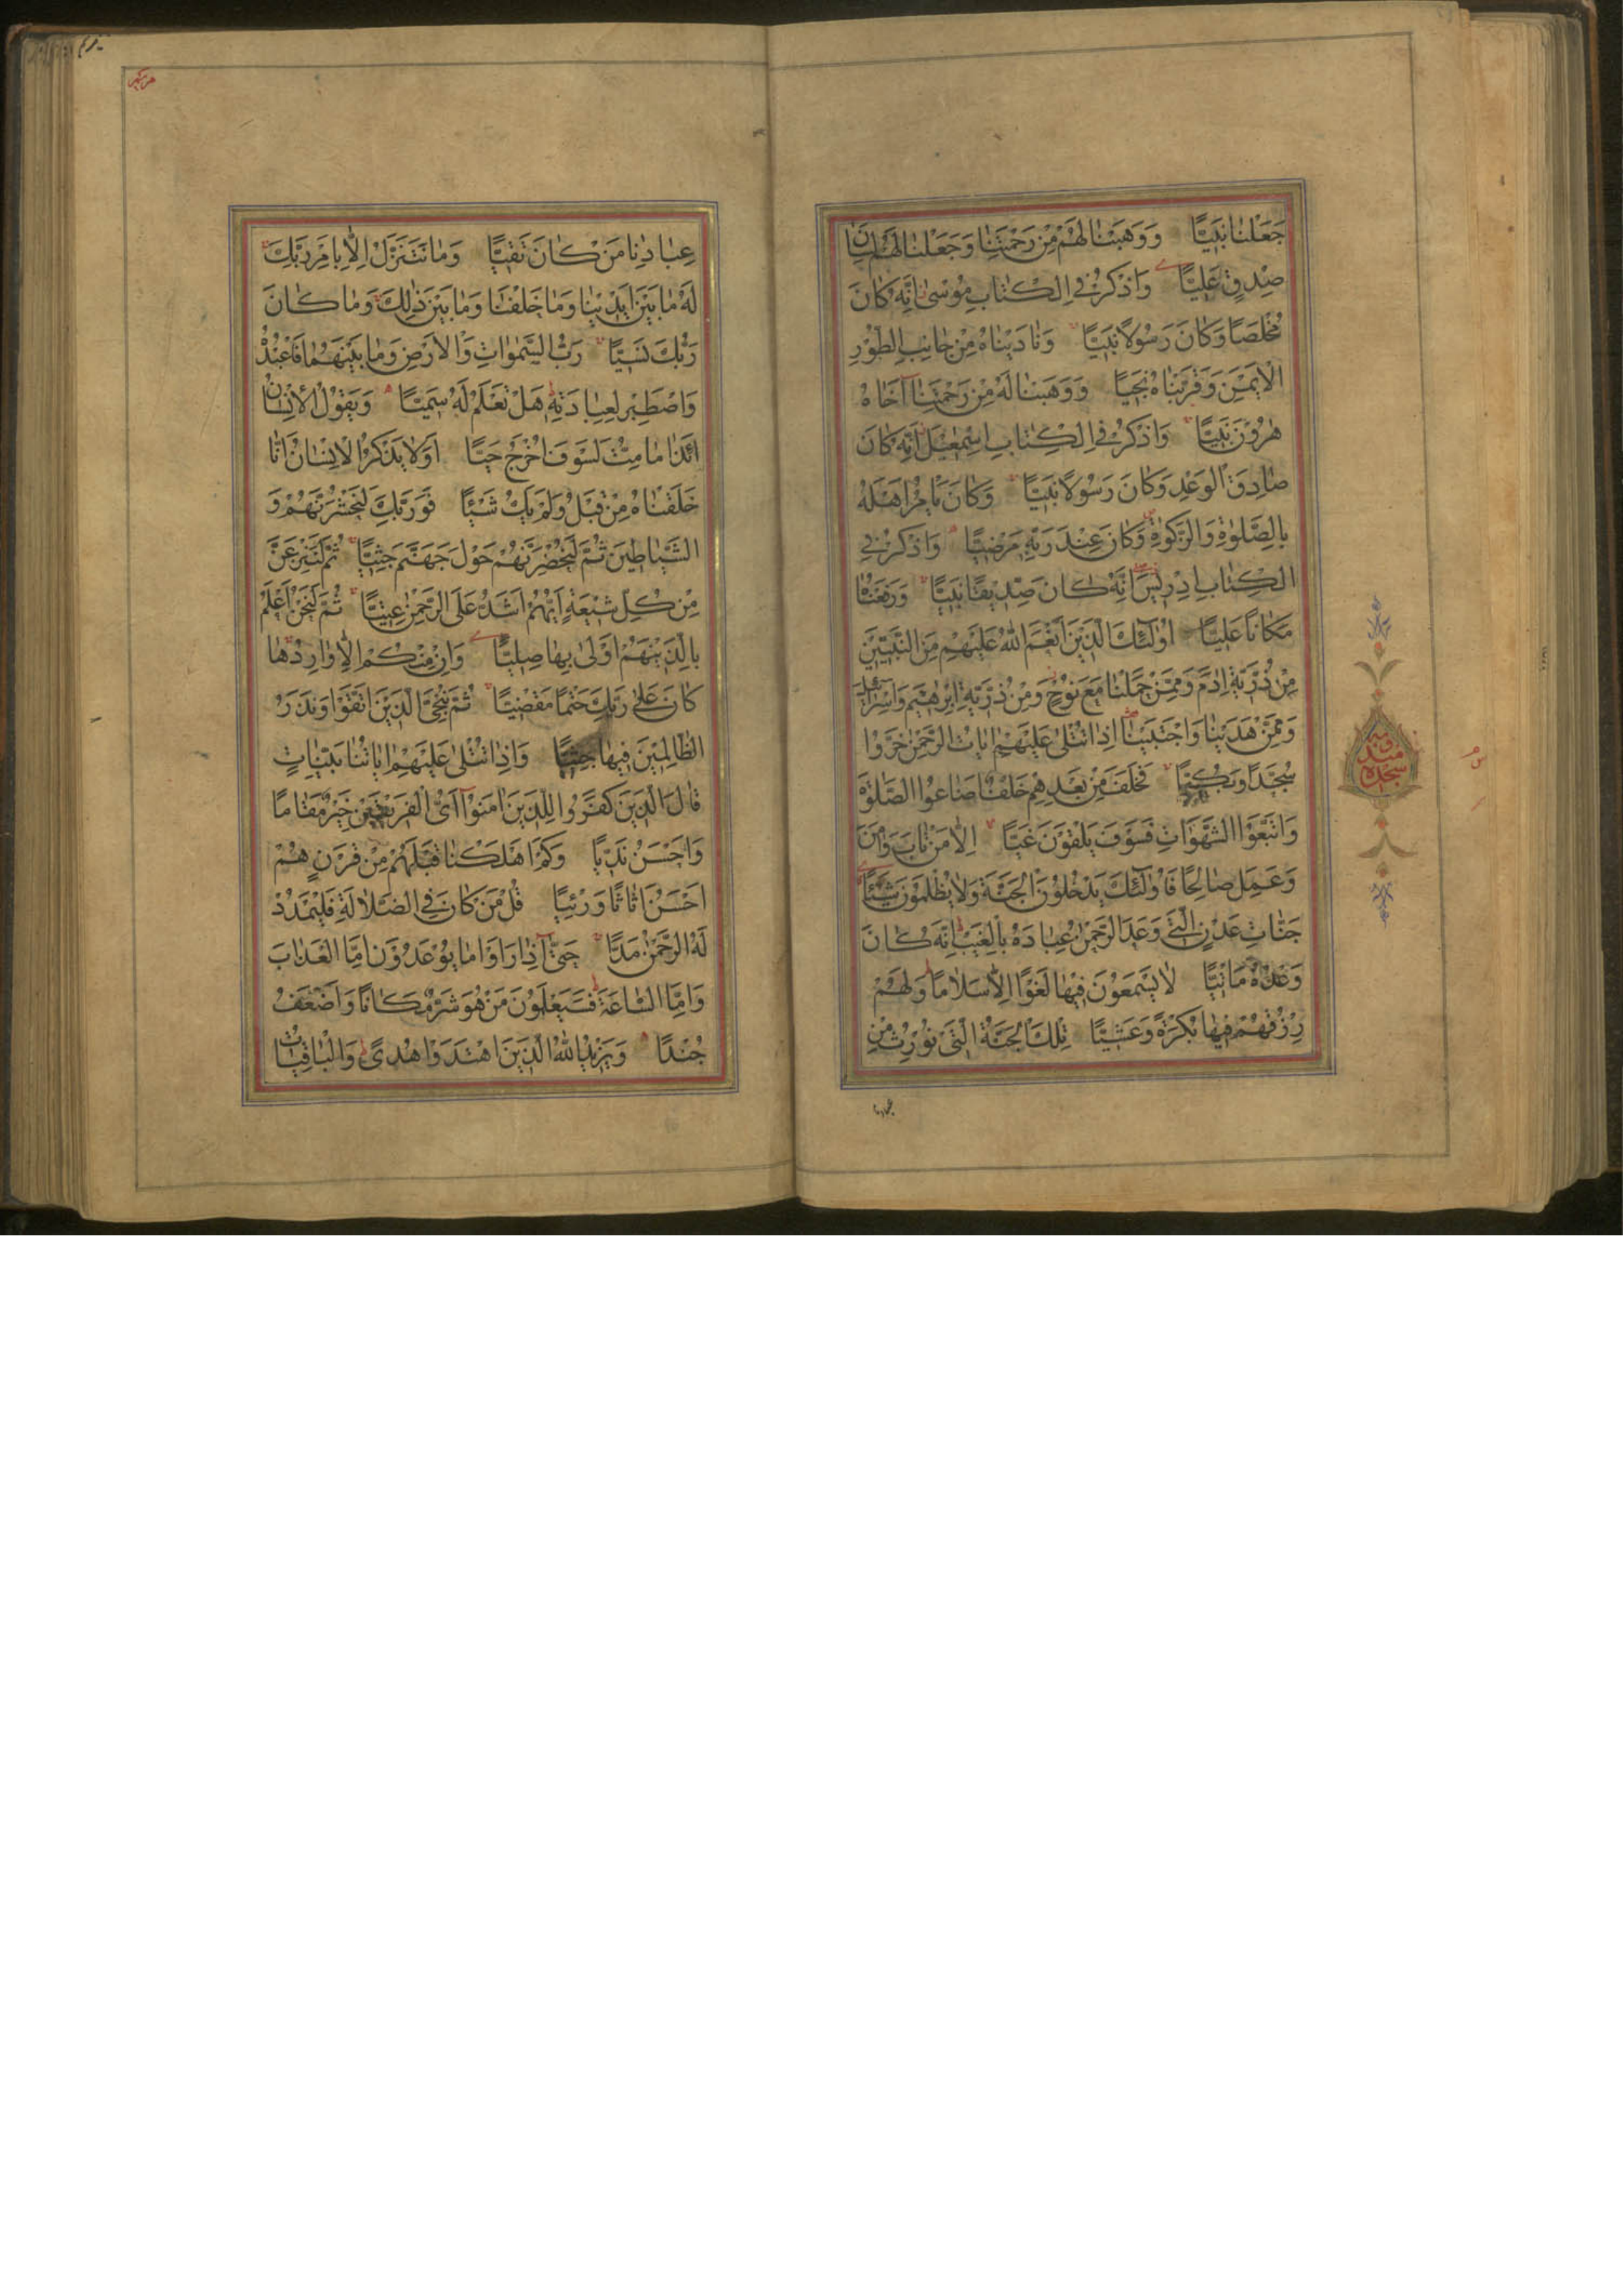 جَعَلْنَا نَبِيًّا وَوَهَبْنَا لَهُمْ مِنْ رَحْمَتِنَا وَجَعَلْنَا لَهُمْ لِسَانَ
صِدْقٍ عَلِيًّا وَاذْكُرْ فِي الْكِتَابِ مُوسَىٰ إِنَّهُ كَانَ
مُخْلَصًا وَكَانَ رَسُولًا نَبِيًّا وَنَادَيْنَاهُ مِنْ جَانِبِ الطُّورِ
الْأَيْمَنِ وَقَرَّبْنَاهُ نَجِيًّا وَوَهَبْنَا لَهُ مِنْ رَحْمَتِنَا أَخَاهُ
هٰرُونَ نَبِيًّا وَاذْكُرْ فِي الْكِتَابِ إِسْمٰعِيلَ إِنَّهُ كَانَ
صَادِقَ الْوَعْدِ وَكَانَ رَسُولًا نَبِيًّا وَكَانَ يَأْمُرُ أَهْلَهُ
بِالصَّلٰوةِ وَالزَّكٰوةِ وَكَانَ عِنْدَ رَبِّهِ مَرْضِيًّا وَاذْكُرْ فِي
الْكِتَابِ إِدْرِيسَ إِنَّهُ كَانَ صِدِّيقًا نَبِيًّا وَرَفَعْنَاهُ
مَكَانًا عَلِيًّا أُولٰئِكَ الَّذِينَ أَنْعَمَ اللّٰهُ عَلَيْهِمْ مِنَ النَّبِيِّينَ
مِنْ ذُرِّيَّةِ اٰدَمَ وَمِمَّنْ حَمَلْنَا مَعَ نُوحٍ وَمِنْ ذُرِّيَّةِ إِبْرٰهِيمَ وَإِسْرَائِيلَ
وَمِمَّنْ هَدَيْنَا وَاجْتَبَيْنَا إِذَا تُتْلَىٰ عَلَيْهِمْ اٰيَاتُ الرَّحْمٰنِ خَرُّوا
سُجَّدًا وَبُكِيًّا فَخَلَفَ مِنْ بَعْدِهِمْ خَلْفٌ أَضَاعُوا الصَّلٰوةَ
وَاتَّبَعُوا الشَّهَوَاتِ فَسَوْفَ يَلْقَوْنَ غَيًّا إِلَّا مَنْ تَابَ وَاٰمَنَ
وَعَمِلَ صَالِحًا فَأُولٰئِكَ يَدْخُلُونَ الْجَنَّةَ وَلَا يُظْلَمُونَ شَيْئًا
جَنَّاتِ عَدْنٍ الَّتِي وَعَدَ الرَّحْمٰنُ عِبَادَهُ بِالْغَيْبِ إِنَّهُ كَانَ
وَعْدُهُ مَأْتِيًّا لَا يَسْمَعُونَ فِيهَا لَغْوًا إِلَّا سَلَامًا وَلَهُمْ
رِزْقُهُمْ فِيهَا بُكْرَةً وَعَشِيًّا تِلْكَ الْجَنَّةُ الَّتِي نُورِثُ مِنْ
عبادنا
سجده
عِبَادِنَا مَنْ كَانَ تَقِيًّا وَمَا نَتَنَزَّلُ إِلَّا بِأَمْرِ رَبِّكَ
لَهُ مَا بَيْنَ أَيْدِينَا وَمَا خَلْفَنَا وَمَا بَيْنَ ذٰلِكَ وَمَا كَانَ
رَبُّكَ نَسِيًّا رَبُّ السَّمٰوَاتِ وَالْأَرْضِ وَمَا بَيْنَهُمَا فَاعْبُدْهُ
وَاصْطَبِرْ لِعِبَادَتِهِ هَلْ تَعْلَمُ لَهُ سَمِيًّا وَيَقُولُ الْإِنْسَانُ
أَئِذَا مَا مِتُّ لَسَوْفَ أُخْرَجُ حَيًّا أَوَلَا يَذْكُرُ الْإِنْسَانُ أَنَّا
خَلَقْنَاهُ مِنْ قَبْلُ وَلَمْ يَكُ شَيْئًا فَوَرَبِّكَ لَنَحْشُرَنَّهُمْ وَ
الشَّيَاطِينَ ثُمَّ لَنُحْضِرَنَّهُمْ حَوْلَ جَهَنَّمَ جِثِيًّا ثُمَّ لَنَنْزِعَنَّ
مِنْ كُلِّ شِيعَةٍ أَيُّهُمْ أَشَدُّ عَلَى الرَّحْمٰنِ عِتِيًّا ثُمَّ لَنَحْنُ أَعْلَمُ
بِالَّذِينَ هُمْ أَوْلَىٰ بِهَا صِلِيًّا وَإِنْ مِنْكُمْ إِلَّا وَارِدُهَا
كَانَ عَلَىٰ رَبِّكَ حَتْمًا مَقْضِيًّا ثُمَّ نُنَجِّي الَّذِينَ اتَّقَوْا وَنَذَرُ
الظَّالِمِينَ فِيهَا جِثِيًّا وَإِذَا تُتْلَىٰ عَلَيْهِمْ اٰيَاتُنَا بَيِّنَاتٍ
قَالَ الَّذِينَ كَفَرُوا لِلَّذِينَ اٰمَنُوا أَيُّ الْفَرِيقَيْنِ خَيْرٌ مَقَامًا
وَأَحْسَنُ نَدِيًّا وَكَمْ أَهْلَكْنَا قَبْلَهُمْ مِنْ قَرْنٍ هُمْ
أَحْسَنُ أَثَاثًا وَرِئْيًا قُلْ مَنْ كَانَ فِي الضَّلَالَةِ فَلْيَمْدُدْ
لَهُ الرَّحْمٰنُ مَدًّا حَتَّىٰ إِذَا رَأَوْا مَا يُوعَدُونَ إِمَّا الْعَذَابَ
وَإِمَّا السَّاعَةَ فَسَيَعْلَمُونَ مَنْ هُوَ شَرٌّ مَكَانًا وَأَضْعَفُ
جُنْدًا وَيَزِيدُ اللّٰهُ الَّذِينَ اهْتَدَوْا هُدًى وَالْبَاقِيَاتُ